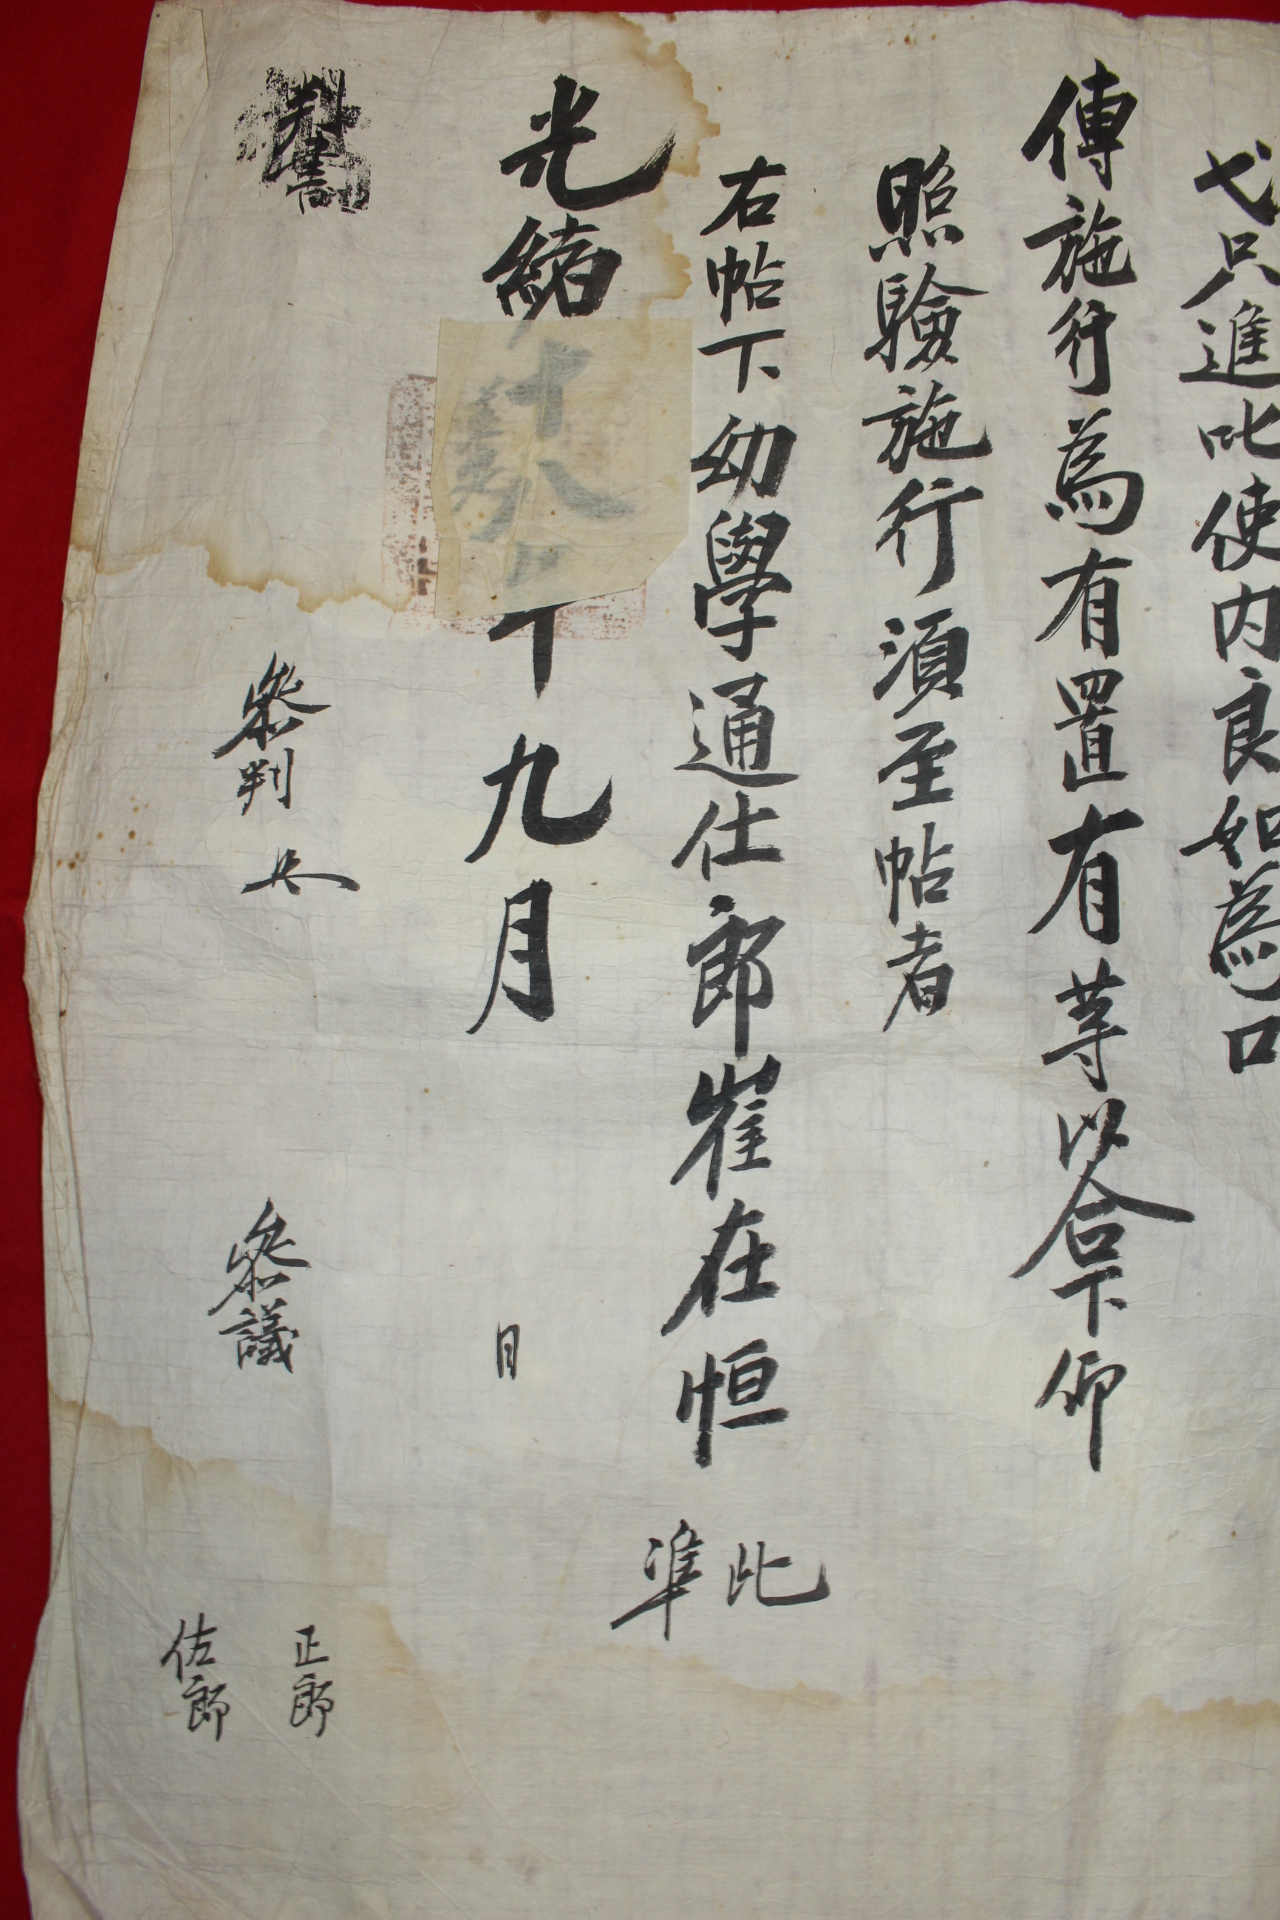 弋只進叱使內良如爲口
傳施行爲有置有等以合下仰
照驗施行須至帖者
右帖下幼學通仕郎崔在恒
此
準
光緖十八年九月 日
判書
參判
參議
正郎
佐郎